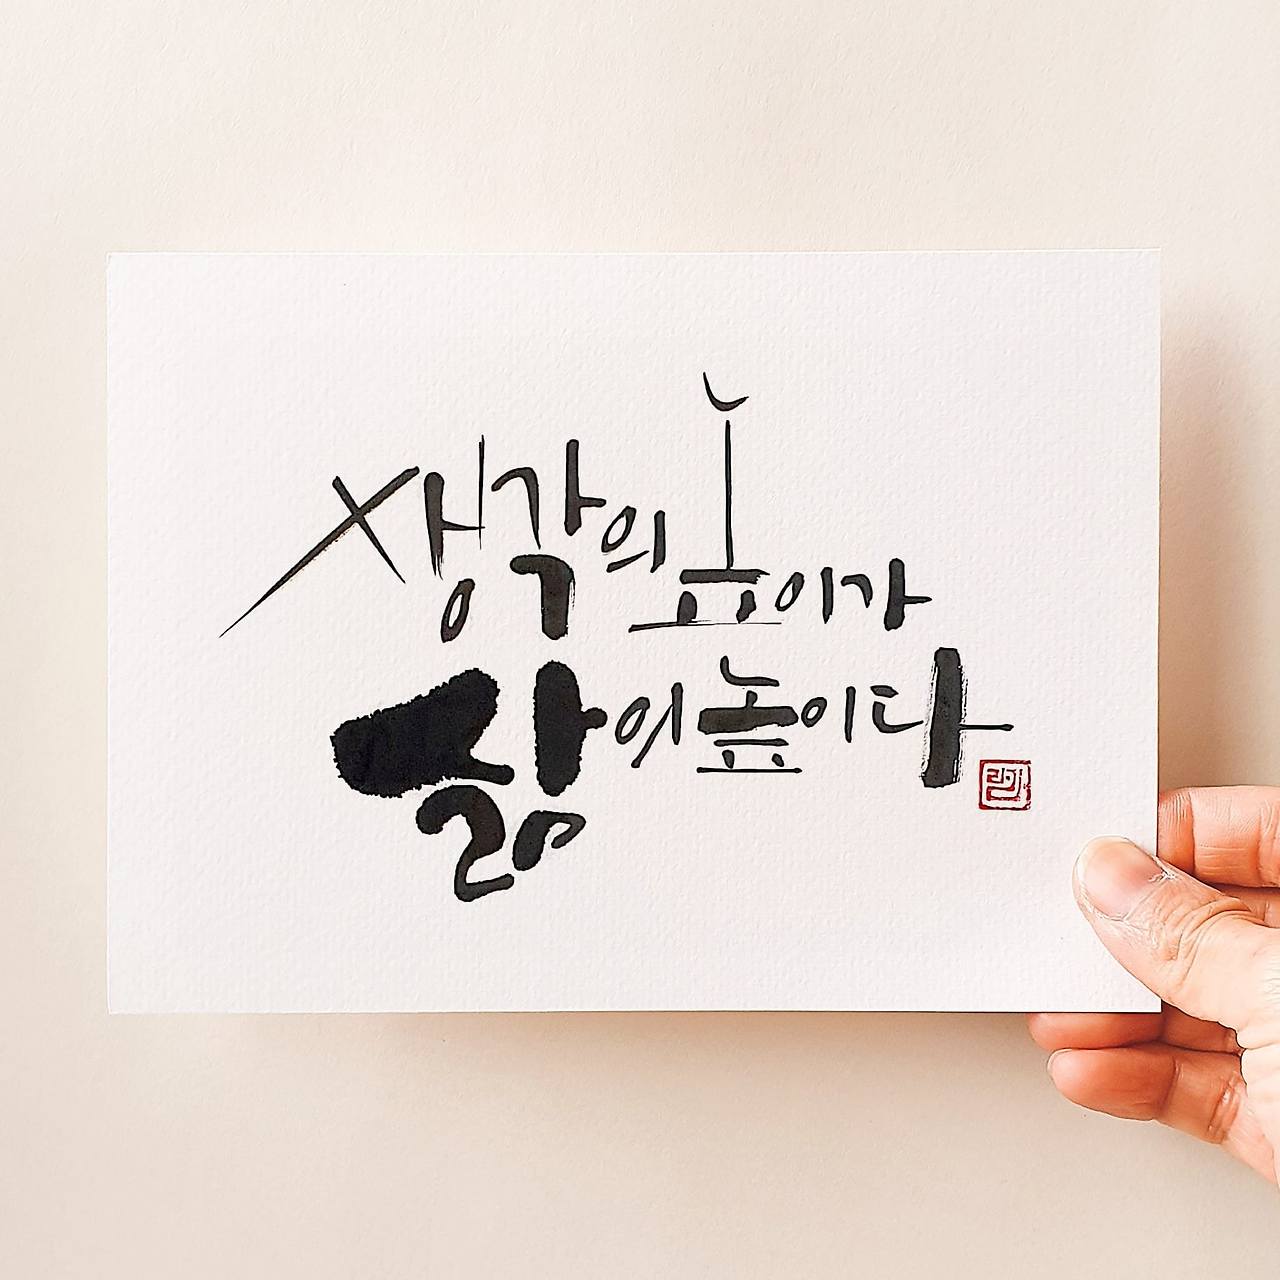 생각의 높이가
삶의 높이다